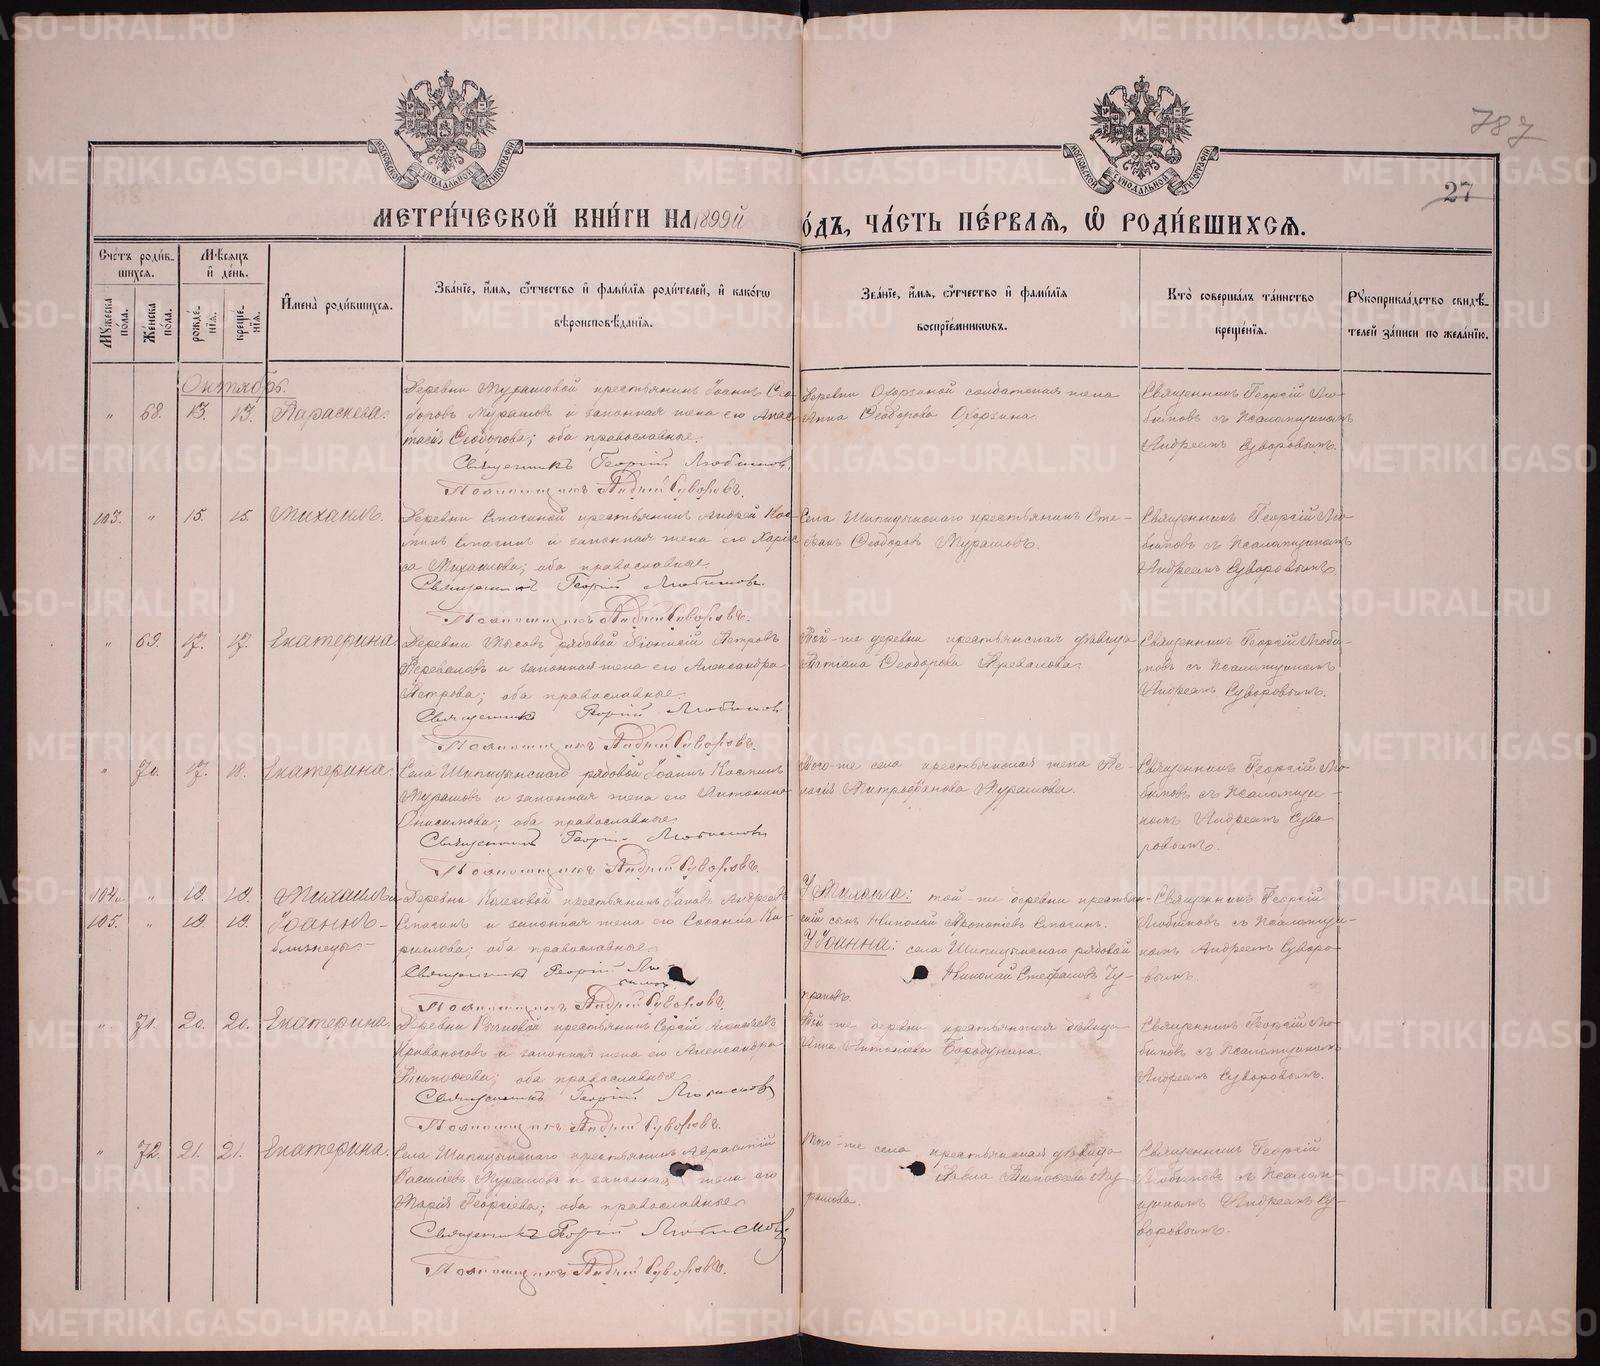 787
27
МОСКОВСКОЙ СѴНОДАЛЬНОЙ ТИПОГРАФІИ
МОСКОВСКОЙ СѴНОДАЛЬНОЙ ТИПОГРАФІИ
МЕТРИ́ЧЕСКОЙ КНИ́ГИ НА 1899й ГО́ДЪ, ЧА́СТЬ ПЕ́РВАЯ, Ѡ РОДИ́ВШИХСЯ.
Сче́тъ роди́в-
шихся.
Мѣ́сяцъ
и де́нь.
Му́жеска по́ла.
Же́нска по́ла.
рожде́-
нія.
креще́-
нія.
Имена̀ роди́вшихся.
Зва́ніе, и́мя, о́тчество и фами́лія роди́телей, и како́гѡ
вѣроисповѣ́данія.
Зва́ніе, и́мя, о́тчество и фами́лія
воспріе́мниковъ.
Кто̀ соверша́лъ та́инство
креще́нія.
Рукоприкла́дство свидѣ́-
телей за́писи по жела́нію.
Октябрь.
„ 68. 13. 17. Параскева.
Деревни Мурашовой крестьянинъ Іоаннъ Ѳео-
Мурашовъ и законная жена его Анас-
тасія Ѳеодорова; оба православные.
Священникъ Георгій Любимовъ.
Псаломщикъ Андрей Суворовъ.
солдатская жена
Анна Ѳеодорова
Священникъ Георгій Лю-
бимовъ съ псаломщикомъ
Андреемъ Суворовымъ.
103. „ 15. 15. Михаилъ.
Деревни Спасиной крестьянинъ Андрей Кос-
минъ Спасинъ и законная жена его
са Михайлова; оба православные.
Священникъ Георгій Любимовъ.
Псаломщикъ Андрей Суворовъ.
Села Шипицынскаго крестьянинъ Сте-
фанъ Ѳеодоровъ Мурашовъ.
Священникъ Георгій Лю-
бимовъ съ псаломщикомъ
Андреемъ Суворовымъ.
„ 69. 17. 17. Екатерина.
Деревни рядовой Діонисій Петровъ
и законная жена его Александра
Петрова; оба православные.
Священникъ Георгій Любимовъ
Псаломщикъ Андрей Суворовъ.
Той-же деревни крестьянская дѣвица
Татіана Ѳеодорова
Священникъ Георгій Люби-
мовъ съ псаломщикомъ
Андреемъ Суворовымъ.
„ 70. 17. 18. Екатерина.
Села Шипицынскаго рядовой Іоаннъ Косминъ
Мурашовъ и законная жена его Антонина
Онисимова; оба православные.
Священникъ Георгій Любимовъ
Псаломщикъ Андрей Суворовъ.
Того-же села крестьянская жена Пе-
лагія Митрофанова Мурашова.
Священникъ Георгій Лю-
бимовъ съ псаломщи-
комъ Андреемъ Суво-
ровымъ.
104. „ 18. 18. Михаилъ и
105. „ 18. 18. Іоаннъ -
близнецы.
Деревни крестьянинъ Андреевъ
Спасинъ и законная жена его Сосанна Ки-
рилова; оба православные.
Священникъ Георгій Лю-
бимовъ
Псаломщикъ Андрей Суворовъ.
У Михаила: той-же деревни крестьян-
скій сынъ Николай Спасинъ.
У Іоанна: села Шипицынскаго рядовой
Николай Стефановъ Чу-
праковъ.
Священникъ Георгій
Любимовъ съ псаломщи-
комъ Андреемъ Суворо-
вымъ.
„ 71. 20. 20. Екатерина.
Деревни крестьянинъ Сергій Алексѣевъ
Кривоноговъ и законная жена его Александра
Тимоѳеева; оба православные.
Священникъ Георгій Любимовъ
Псаломщикъ Андрей Суворовъ.
Той-же деревни крестьянская дѣвица
Анна Антоніева
Священникъ Георгій Лю-
бимовъ съ псаломщикомъ
Андреемъ Суворовымъ.
„ 72. 21. 21. Екатерина.
Села Шипицынскаго крестьянинъ
Василіевъ Мурашовъ и законная жена его
Марія Георгіева; оба православные.
Священникъ Георгій Любимовъ
Псаломщикъ Андрей Суворовъ.
Того-же села крестьянская дѣвица
Тимоѳеева Му-
рашова.
Священникъ Георгій
Любимовъ съ псалом-
щикомъ Андреемъ Су-
воровымъ.
METRIKI.GASO-URAL.RU